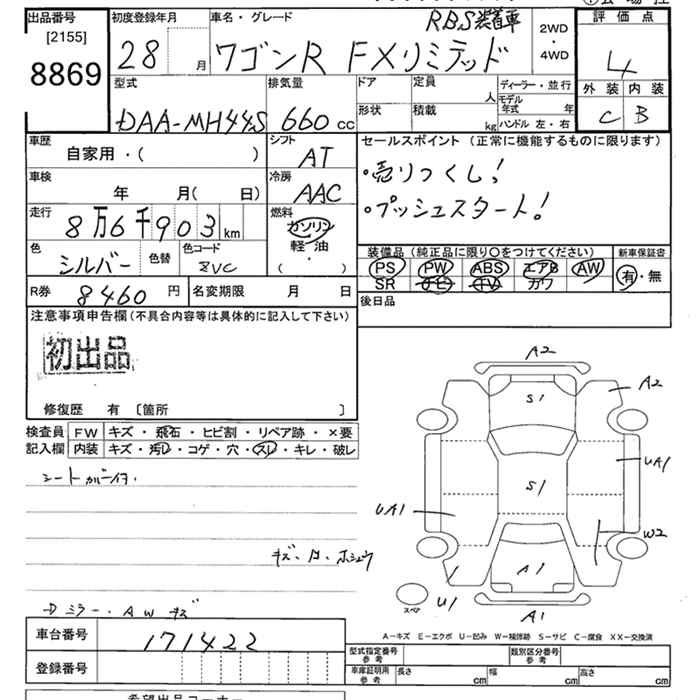 出品番号
[2155]
8869
初度登録年月
28 月
車名・グレード
RBS装着車
ワゴンR FXリミテッド
2WD
・
4WD
評価点
4
外装 内装
C B
型式
DAA-MH44S
排気量
660 cc
ドア
定員
人
形状
積載
kg
ディーラー・並行
モデル年式 年
ハンドル 左・右
車歴
自家用・( )
シフト
AT
車検
年 月( 日)
冷房
AAC
走行
8万6千903km
燃料
ガソリン
軽・油
・( )
色
シルバー
色替
色コード
ZVC
R券 8460円
名変期限 月 日
セールスポイント (正常に機能するものに限ります)
・売りつくし!
・プッシュスタート!
装備品(純正品に限り○をつけてください)
PS PW ABS エアB AW
SR ナビ TV カワ
新車保証書
有・無
後日品
注意事項申告欄(不具合内容等は具体的に記入して下さい)
初出品
修復歴 有 〔箇所 〕
検査員記入欄
FW キズ・飛石・ヒビ割・リペア跡・×要
内装 キズ・汚レ・コゲ・穴・スレ・キレ・破レ
シートカバー付
キズ・凹・ホシュウ
Dミラー・AWキズ
A2
A2
S1
UA1
S1
UA1
W2
A1
U1
A1
スペア
A-キズ E-エクボ U-凹み W-補修跡 S-サビ C-腐食 XX-交換済
車台番号
171422
登録番号
型式指定番号 参考
類別区分番号 参考
車庫証明用 参考
長さ cm
幅 cm
高さ cm
希望出品コーナー